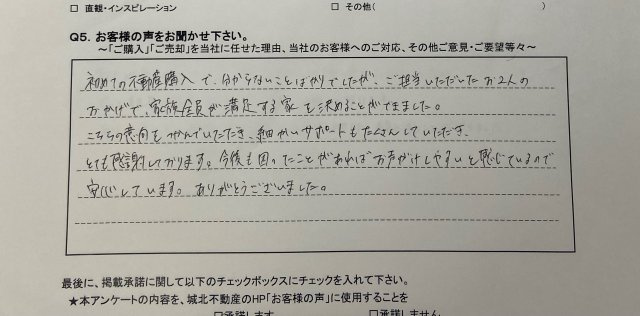 □ 直観・インスピレーション　□ その他(　　　)
Q5. お客様の声をお聞かせ下さい。
～「ご購入」「ご売却」を当社に任せた理由、当社のお客様へのご対応、その他ご意見・ご要望等々～
初めての不動産購入で、分からないことばかりでしたが、ご担当いただいたお2人の
おかげで、家族全員が満足する家を決めることができました。
こちらの意向をつかんでいただき、細かいサポートもたくさんしていただき、
とても感謝しております。今後も困ったことがあればお声がけしやすいと感じているので
安心しています。ありがとうございました。
最後に、掲載承諾に関して以下のチェックボックスにチェックを入れて下さい。
★本アンケートの内容を、城北不動産のHP「お客様の声」に使用することを
□承諾します　□承諾しません